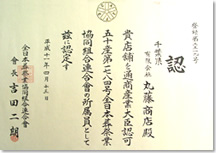 認
千葉県
有限会社 丸藤商店殿
貴店舗を通商産業大臣認可
五十産第一七八四号全日本葬祭業
協同組合連合会の所属員として
茲に認定す
平成十一年四月十三日
全日本葬祭業協同組合連合会
会長 吉田二朗